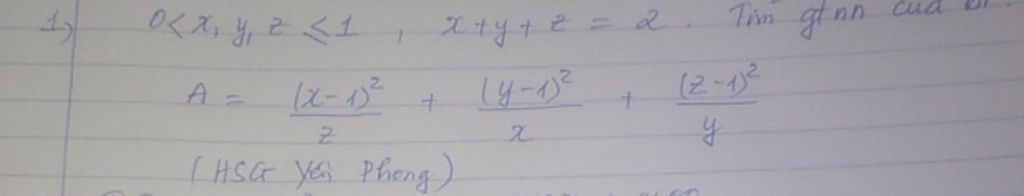 1) 0 < x, y, z ≤ 1 , x + y + z = 2 . Tìm gtnn của
A = (x-1)²/z + (y-1)²/x + (z-1)²/y
(HSG Yên Phong)